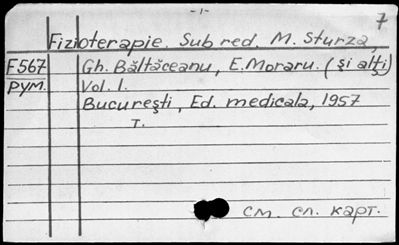 -1-
7
Fizioterapie. Sub red. M. Sturza,
F567 Gh. Băltăceanu, E. Moraru. (și alți)
рум. Vol. 1.
București, Ed. medicala, 1957
т.
см. сл. карт.